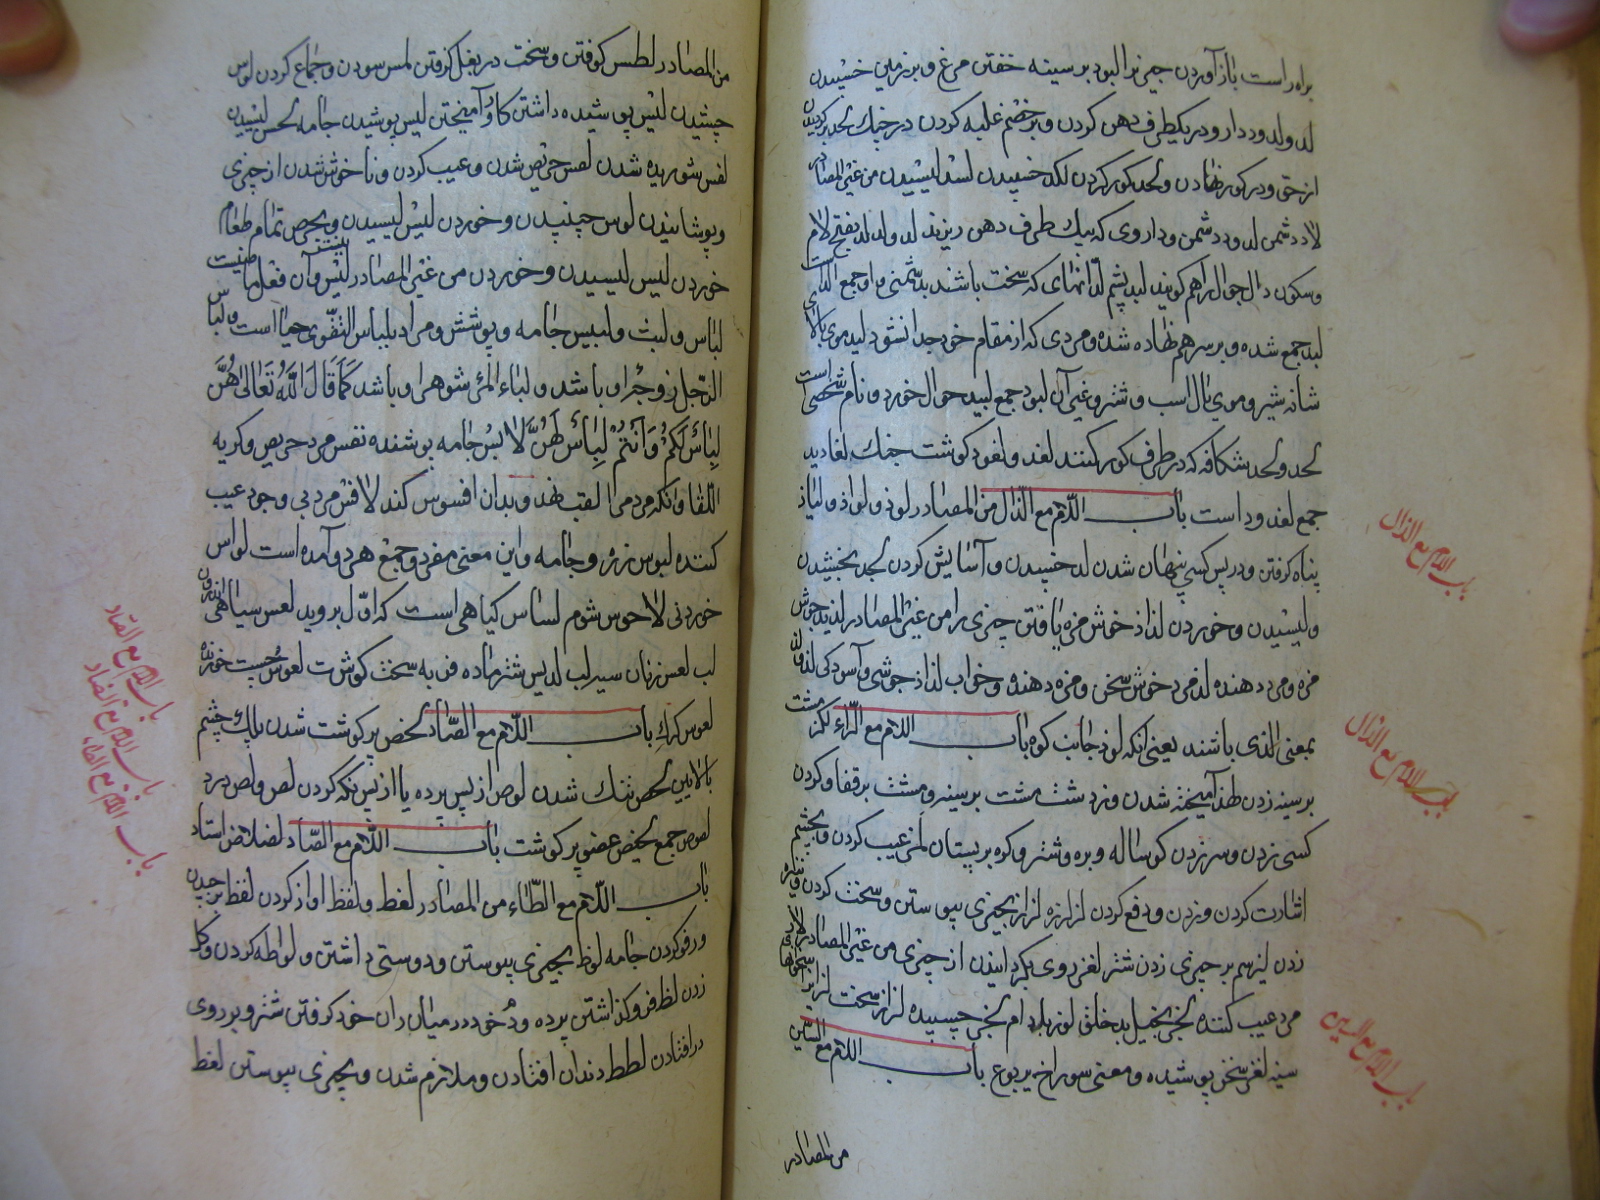 براه راست باز آوردن چیزیرا لبود بر سینه خفتن مرغ و بر زمین خسپیدن
لد ولدود دارو در یکطرف دهن کردن و بر خصم غلبه کردن در جنك لحد برکردیدن
از حق و در کور نهادن و لحد کور کردن لکد خسپیدن لسد لیسیدن من غیر المصادر
لادد شمن لدود دشمن و داروی که بیك طرف دهن ریزند لد ولد لد بفتح لام
و سکون دال جوال را هم کویند لبد پشم لد انهای که سخت باشند بدشمنی و او جمع الد است
لبد جمع شده و بر سر هم نهاده شده و مردی که از مقام خود جدا نشود لبد موی بالای
شانه شیر و موی یال اسب و شتر و غیر آن لبود جمع لبید جوال خورد و نام شخصی است
لحد و لحد شکافه که در طرف کور کنند لغد و لغود کوشت جنك لغادید
جمع لغدود است باب اللام مع الذال من المصادر لوذ و لواذ و لیاذ
پناه کرفتن و در پس کسی پنهان شدن لذ خسپیدن و آسایش کردن لجذ بخشیدن
و لیسیدن و خوردن لذاذ خوش مزه یافتن چیزی را من غیر المصادر لذیذ خوش
مزه و مزه دهنده لذ مرد خوش سخن و مزه دهنده و خواب لذاذ خوشی و آسودکی لذ ولذ
بمعنی الذی باشند یعنی انکه لوذ جانب کوه باب اللام مع الزاء لکز مشت
بر سینه زدن لهز آمیخته شدن و زدن مشت بر سینه و مشت بر قفا و کردن
کسی زدن و سر زدن کوساله و بره و شتر و کوه بر پستان لمز عیب کردن و بچشم
اشارت کردن و زدن و دفع کردن لز لزازه لزاز بچیزی پیوستن و سخت کردن و نیزه
زدن لیز هم بر چیزی زدن شتر لغز روی بکردانیدن از چیزی من غیر المصادر
مرد عیب کننده لحز بخیل بد خلق لوز بادام لحز چسپیده لزاز سخت لز
سینه لغز سخن پوشیده و معنی سوراخ یربوع باب اللام مع السین
من المصادر
باب اللام مع الذال
باب اللام مع الزال
باب اللام مع السین
من المصادر لطس کوفتن و سخت در بغل کرفتن لمس سودن و جماع کردن لوس
چشیدن لبس پوشیده داشتن کار و آمیختن لبس پوشیدن جامه لحس لیسیدن
لقس شوریده شدن لقس حریص شدن و عیب کردن و ناخوش شدن از چیزی
و پوشانیدن لوس چسپیدن و خوردن لیس لیسیدن و بحرص تمام طعام
خوردن لیس لیسیدن و خوردن من غیر المصادر لیس و آن فعل ماضیست
لباس و لبث و لبیس جامه و پوشش و مراد بلباس التقوی حیا است و لباس
الرجل زوجه او باشد و لباء المرء شوهر او باشد کَمَا قَالَ اللَّهُ تَعَالَى هُنَّ
لِبَاسٌ لَكُمْ وَأَنْتُمْ لِبَاسٌ لَهُنَّ لابس جامه پوشنده نقس مرد حریص و کریه
اللقا و انکه مردم را لقب نهد و بدان افسوس کند لاقس مرد بی وجود عیب
کننده لبوس زره و جامه و این معنی مفرد و جمع هر دو آمده است لواس
خوردنی لاحوس شوم لساس کیاهی است که اول بروید لعس سیاهی اندرون
لب لعس زنان سیر لب لدیس شتر ماده فربه سخت کوشت لعوس چست خورنده
لعوس کرك باب اللام مع الصاد لخص پر کوشت شدن پلك چشم
بالایین لحص تنك شدن لوص از پس پرده یا از پس نکه کردن لص و لص دزد
لصوص جمع لخیص عضو پر کوشت باب اللام مع الضاد لضلاض استاد
باب اللام مع الطاء من المصادر لغط و لفظ اواز کردن لقط برچیدن
و رفو کردن جامه لوط بچیزی پیوستن و دوستی داشتن و لواطه کردن و کل
زدن لط فرو کذاشتن پرده و دُم خود در میان ران خود کرفتن شتر و بر روی
در افتادن لطط دندان افتادن و ملازم شدن و بچیزی پیوستن لغط
باب اللام مع الصاد
باب اللام مع الضاد
باب اللام مع الطاء